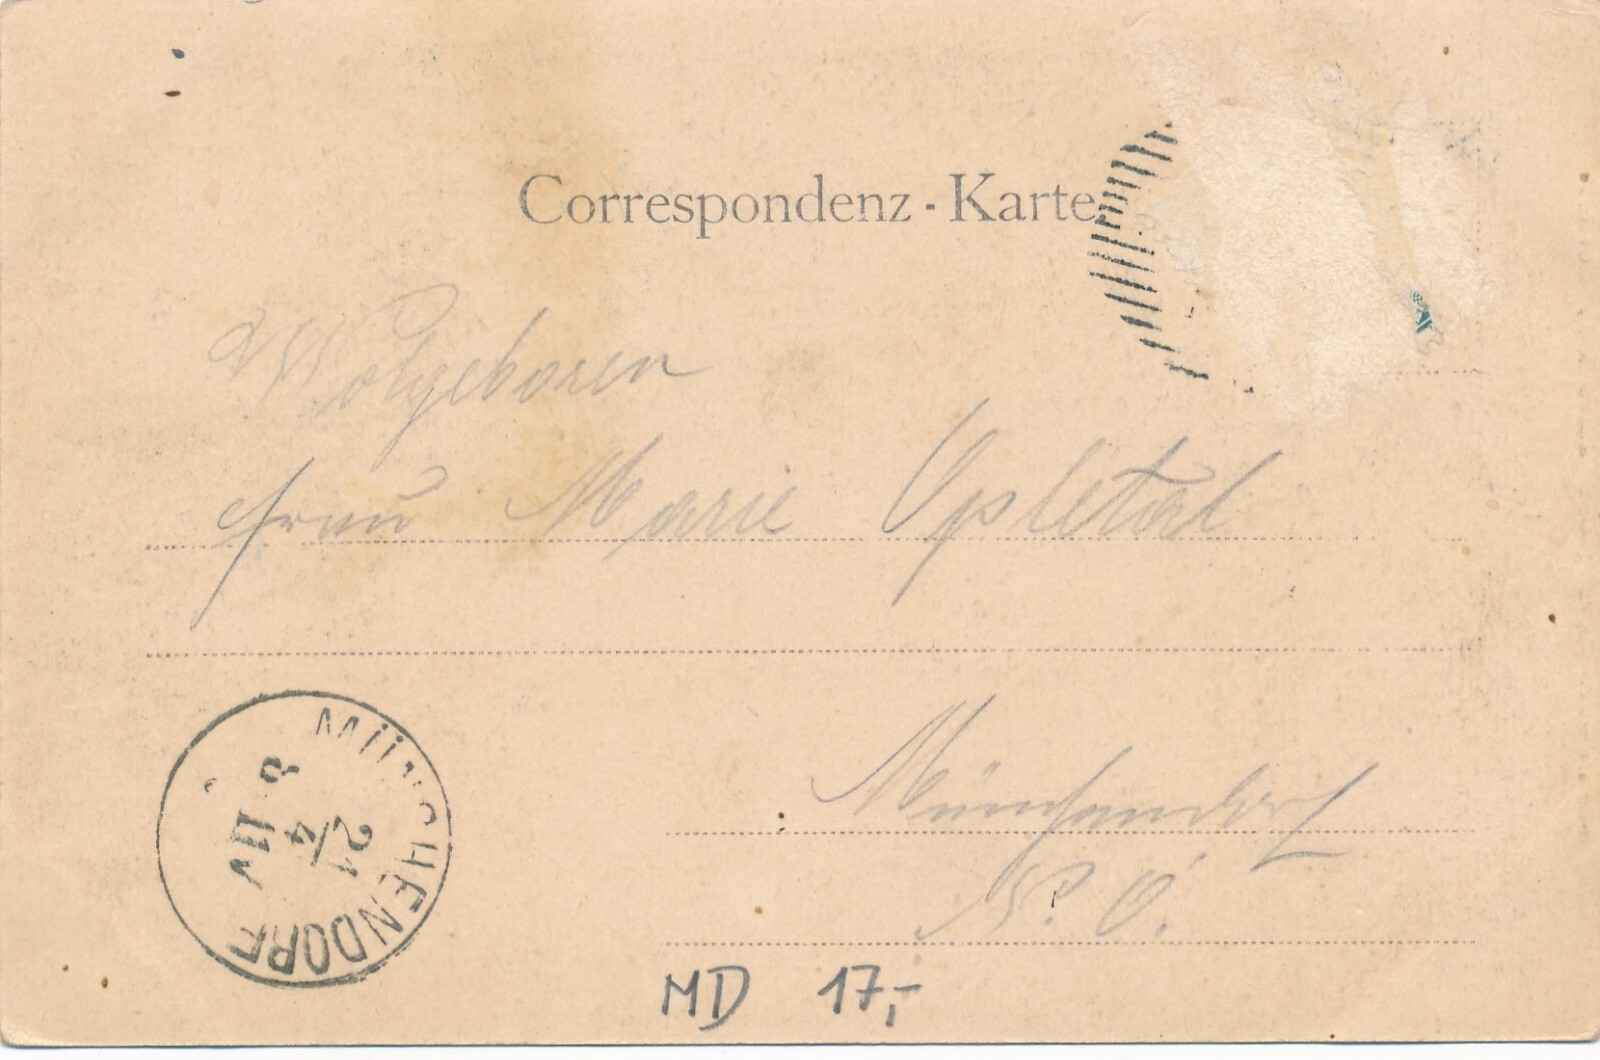 Correspondenz - Karte
Wolgeboren
Frau Marie Opletal
Münchendorf
N. Ö.
MÜNCHENDORF
21/4
MD 17,-